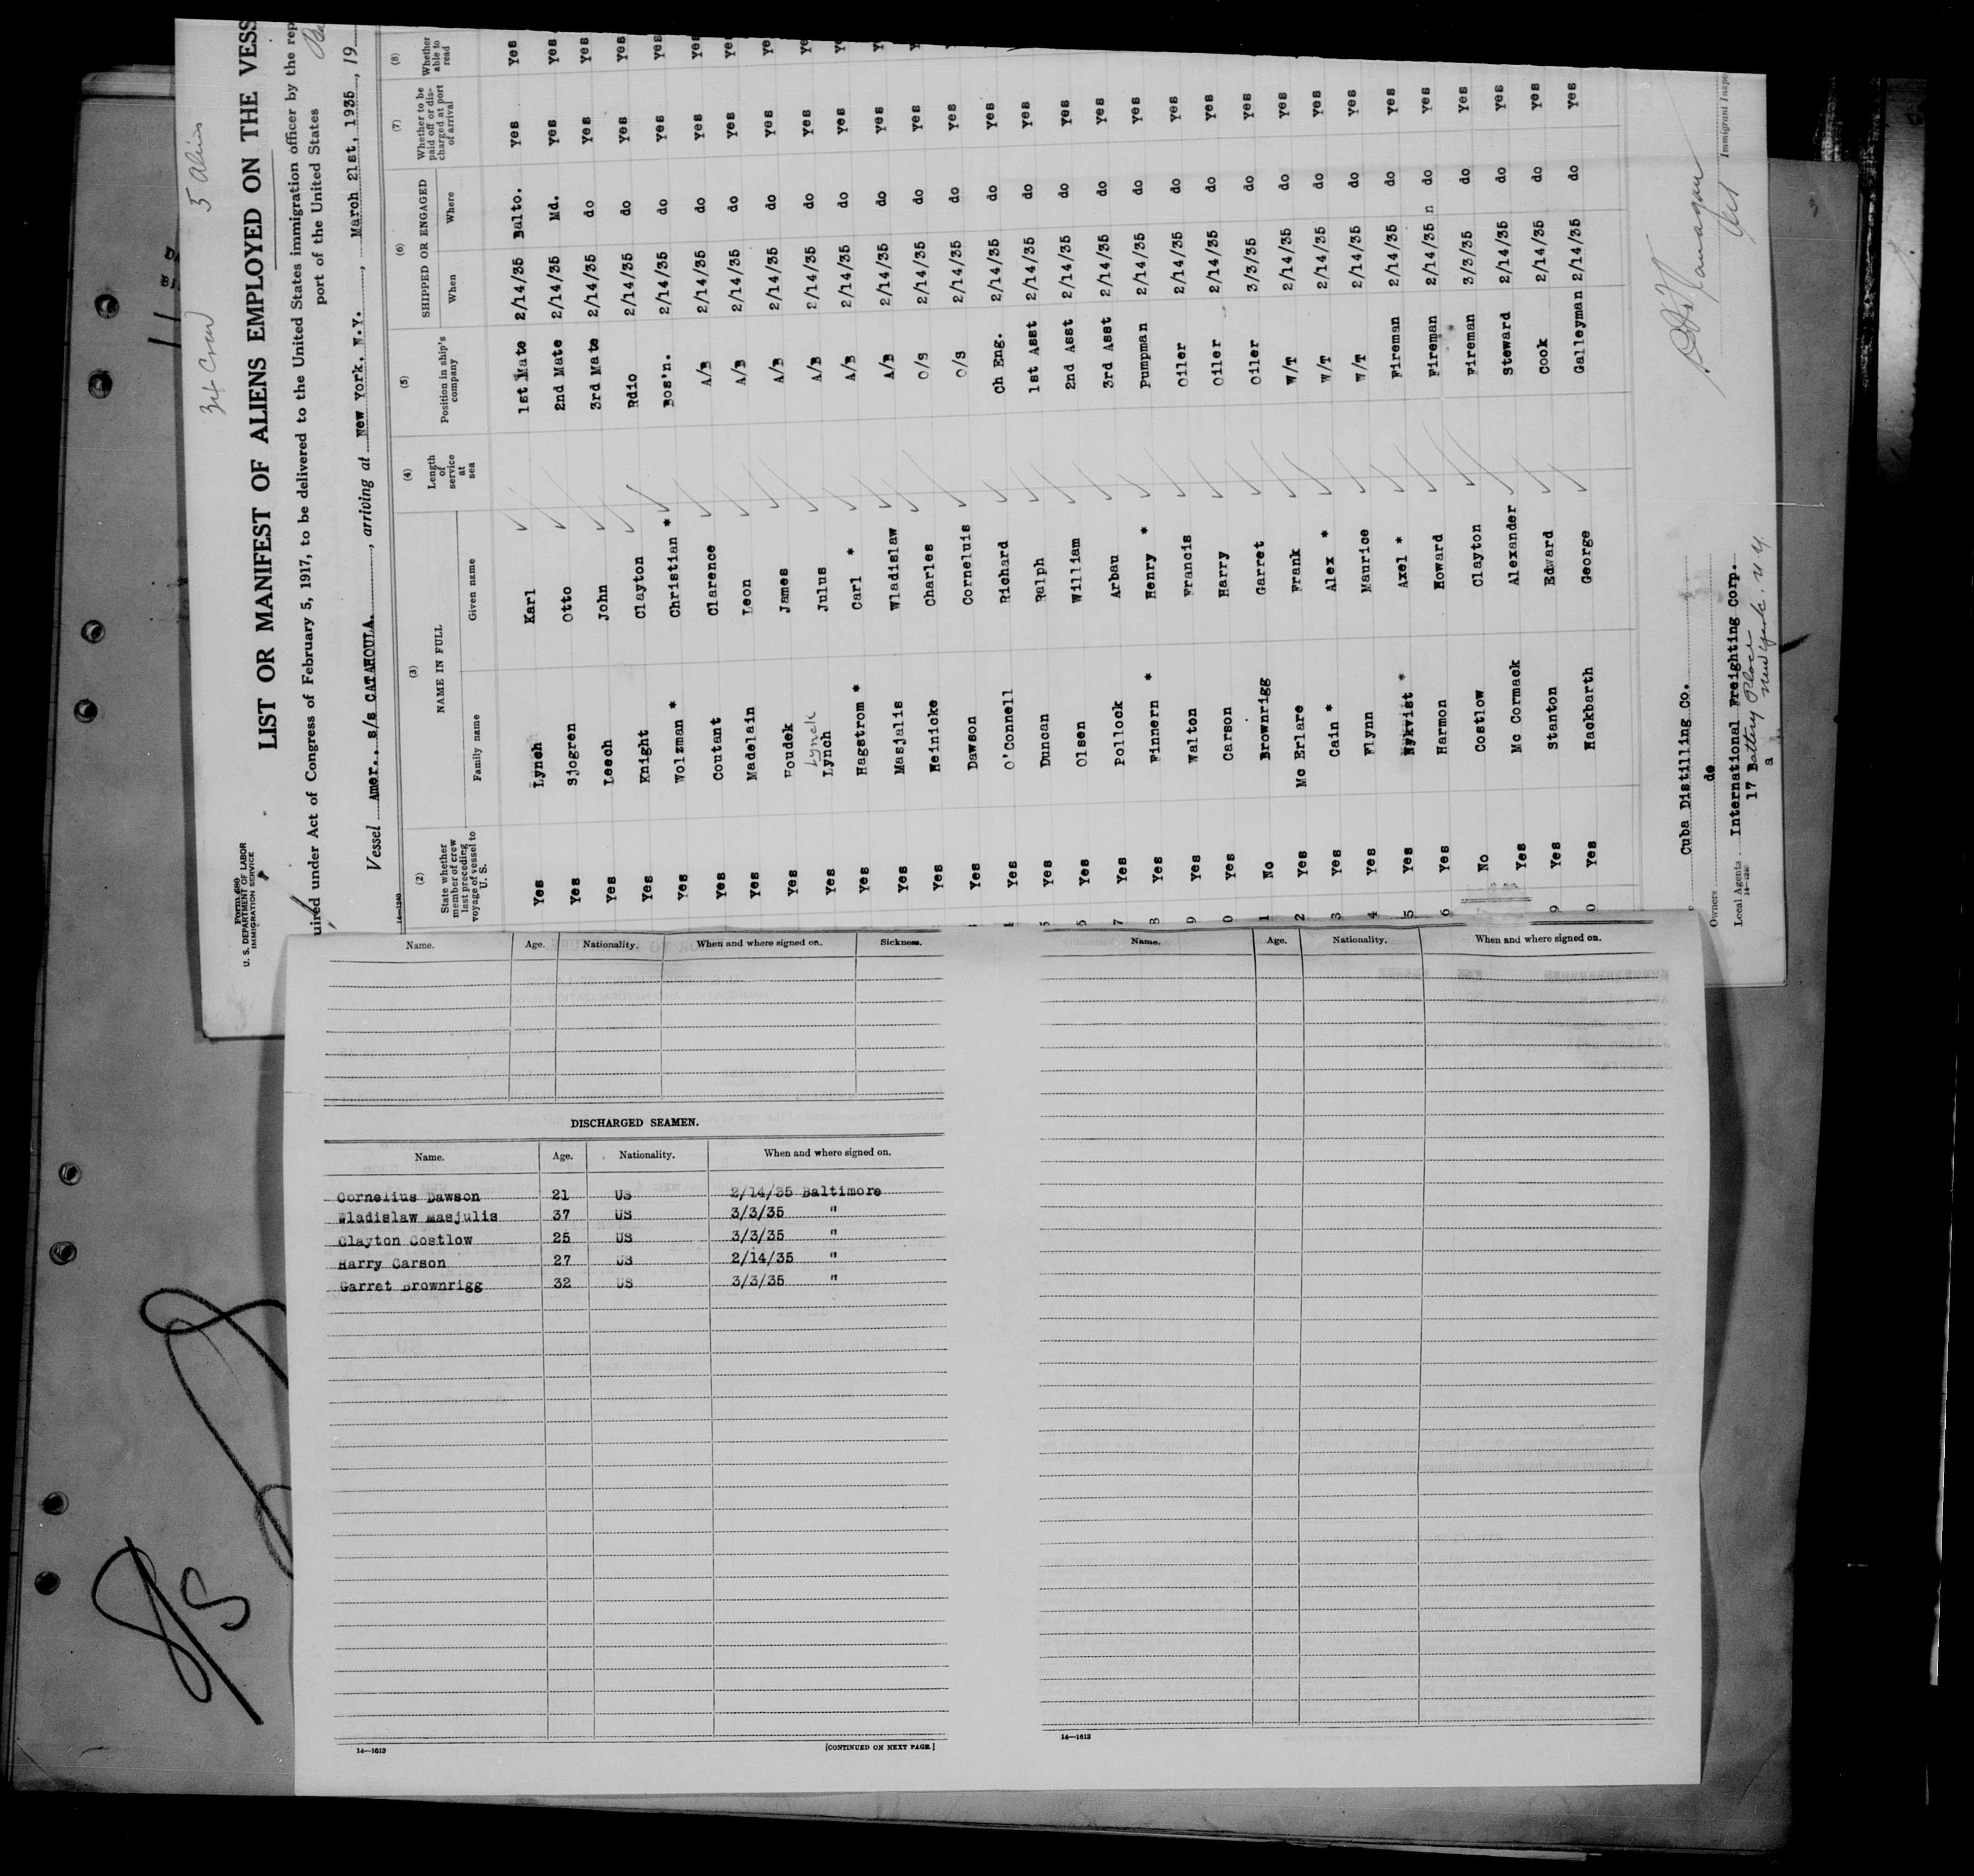 34 Crew 5 Aliens
Form 680
U. S. DEPARTMENT OF LABOR
IMMIGRATION SERVICE
LIST OR MANIFEST OF ALIENS EMPLOYED ON THE VESS
uired under Act of Congress of February 5, 1917, to be delivered to the United States immigration officer by the rep
port of the United States
Vessel Amer.. s/s CATAHOULA. , arriving at New York. N.Y. , March 21st, 1935 , 19
14—1240
(2) (3) (4) (5) (6) (7) (8)
State whether member of crew last preceding voyage of vessel to U. S. NAME IN FULL Length of service at sea Position in ship's company SHIPPED OR ENGAGED Whether to be paid off or discharged at port of arrival Whether able to read
Family name Given name When Where
Yes Lynch Karl 1st Mate 2/14/35 Balto. Yes Yes
Yes Sjogren Otto 2nd Mate 2/14/35 Md. Yes Yes
Yes Leech John 3rd Mate 2/14/35 do Yes Yes
Yes Knight Clayton Rdio 2/14/35 do Yes Yes
Yes Wolzman * Christian * Bos'n. 2/14/35 do Yes Yes
Yes Coutant Clarence A/B 2/14/35 do Yes Yes
Yes Madelain Leon A/B 2/14/35 do Yes Ye
Yes Houdek James A/B 2/14/35 do Yes Ye
Lynch
Yes Lynch Julus A/B 2/14/35 do Yes Ye
Yes Hagstrom * Carl * A/B 2/14/35 do Yes Y
Yes Masjalis Wladislaw A/B 2/14/35 do Yes Y
Yes Heinicke Charles O/S 2/14/35 do Yes Y
Yes Dawson Corneluis O/S 2/14/35 do Yes
Yes O'Connell Richard Ch Eng. 2/14/35 do Yes
5 Yes Duncan Ralph 1st Asst 2/14/35 do Yes
6 Yes Olsen William 2nd Asst 2/14/35 do Yes
7 Yes Pollock Arbau 3rd Asst 2/14/35 do Yes
8 Yes Finnern * Henry * Pumpman 2/14/35 do Yes
9 Yes Walton Francis Oiler 2/14/35 do Yes
0 Yes Carson Harry Oiler 2/14/35 do Yes
1 No Brownrigg Garret Oiler 3/3/35 do Yes
2 Yes Mc Erlare Frank W/T 2/14/35 do Yes
3 Yes Cain * Alex * W/T 2/14/35 do Yes
4 Yes Flynn Maurice W/T 2/14/35 do Yes
5 Yes Nykvist * Axel * Fireman 2/14/35 do Yes
6 Yes Harmon Howard Fireman 2/14/35 n do Yes
No Costlow Clayton Fireman 3/3/35 do Yes
Yes Mc Cormack Alexander Steward 2/14/35 do Yes
9 Yes Stanton Edward Cook 2/14/35 do Yes
0 Yes Hackbarth George Galleyman 2/14/35 do Yes
Cuba Distilling Co.
Owners do
Immigrant Inspe
Local Agents International Freighting Corp.
14—1240
17 Battery Place
New York. N.Y.
a
Name. Age. Nationality. When and where signed on. Sickness.
DISCHARGED SEAMEN.
Name. Age. Nationality. When and where signed on.
Cornelius Dawson 21 US 2/14/35 Baltimore
Wladislaw Masjulis 37 US 3/3/35 "
Clayton Costlow 25 US 3/3/35 "
Harry Carson 27 US 2/14/35 "
Garret Brownrigg 32 US 3/3/35 "
14—1613 [CONTINUED ON NEXT PAGE.]
Name. Age. Nationality. When and where signed on.
14—1613